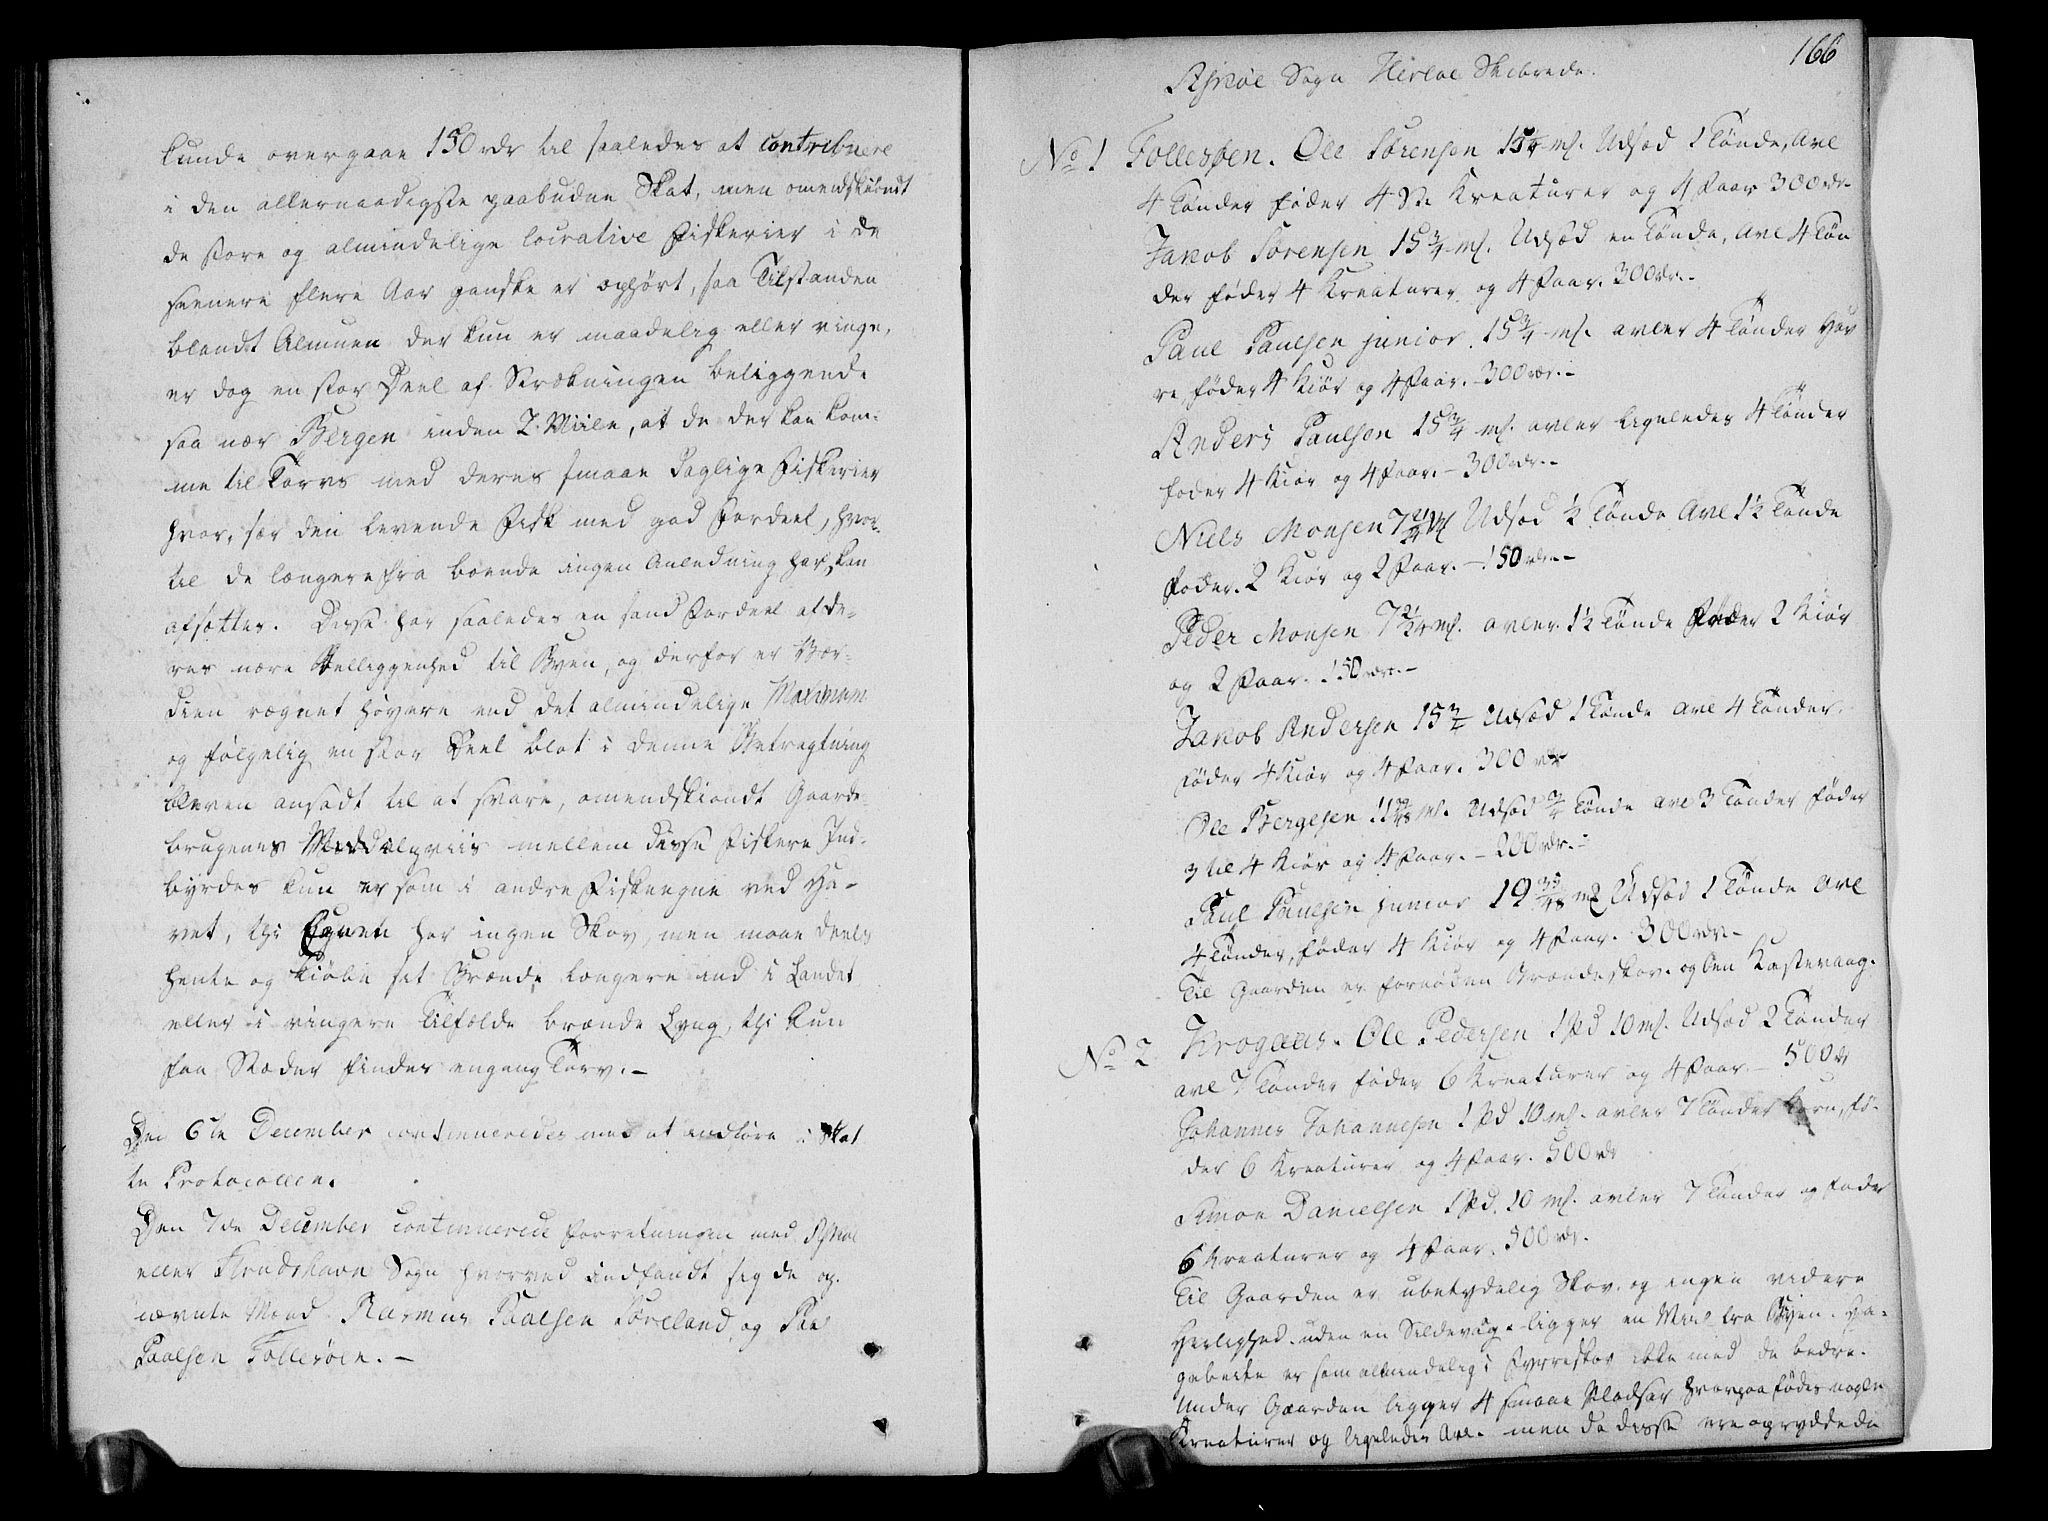 kunde overgaae 150 rdr til saaledes at contribuere
i den allernaadigste paabudne Skat, men omendskiøndt
de store og almindelige lucrative Fiskerier i de
seenere flere Aar ganske er ophørt, saa Tilstanden
blandt Almuen der kun er maadelig eller ringe,
er dog en stor Deel af Strækningen beliggende
saa nær Bergen inden 2 Miile, at de der kan kom-
me til Torvs med deres smaae daglige Fiskerier
hvor, før den levende Fisk med god Fordeel, hvor-
til de længere fra boende ingen Anledning har, kan
afsættes. Disse har saaledes en sand Fordeel af de-
res nære Belliggenhed til Byen, og derfor er Vær-
dien regnet høyere end det almindelige Maximum
og følgelig en stor Deel blot i denne Betragtning
bleven ansadt til at svare, omendskiondt Gaarde-
brugenes Middelpriis mellem disse Fiskere Ind-
byrdes kun er som i andre Fiskeegne ved Ha-
vet, thi Egnen har ingen Skov, men maae deels
hente og kiøbe sit Brænde længere ind i Landet
eller i ringere Tilfælde brænde Lyng, thi kun
faa Stæder findes engang Torv. -
Den 6te December continueredes med at indføre i Skat
te Protocollen.
Den 7de December continuerede Forretningen med Askøe
eller Strudshavn Sogn hvorved indfandt sig de op-
nævnte Mænd Rasmus Paalsen Søreland og Paul
Paalsen Follesøen. -
166
Askøe Sogn Herløe Skibrede.
No 1 Follesøen. Ole Sørensen 15 3/4 ml. Udsæd 1 Tønde, Avl
4 Tønder føder 4 St. Kreaturer og 4 Faar 300 rdr. -
Jakob Sørensen 15 3/4 ml. Udsæd en Tønde, Avl 4 Tøn
der føder 4 Kreaturer og 4 Faar. 300 rdr. -
Paul Paulsen junior. 15 3/4 ml. avler 4 Tønder Hav
re, føder 4 Kiør og 4 Faar. - 300 rdr. -
Anders Paulsen 15 3/4 ml. avler ligeledes 4 Tønder
føder 4 Kiør og 4 Faar. - 300 rdr. -
Niels Monsen 7 21/24 ml Udsæd 1/2 Tønde Avl 1 1/2 Tønde
føder 2 Kiør og 2 Faar. - 150 rdr. -
Peder Monsen 7 21/24 ml. avler 1 1/2 Tønde Føder 2 Kiør
og 2 Faar. 150 rdr. -
Jakob Andersen 15 3/4 Udsæd 1 Tønde avl 4 Tønder.
føder 4 Kiør og 4 Faar. 300 rdr
Ole Bergesen 11 ml. Udsæd 3/4 Tønde avl 3 Tønder føder
3 til 4 Kiør og 4 Faar. - 200 rdr. -
Paul Paulsen junior 19 ml Udsæd 1 Tønde Avl
4 Tønder, føder 4 Kiør og 4 Faar. 300 rdr. -
Til Gaarden er fornøden Brændeskov. og Een Kastevaag.
No 2 Krogaas. Ole Pedersen 1 pd 10 ml. Udsæd 2 Tønder
avl 7 Tønder føder 6 Kreaturer og 4 Faar. - 500 rdr
Johannes Johannesen 1 pd 10 ml. avler 7 Tønder Korn, fø-
der 6 Kreaturer og 4 Faar. 500 rdr
Simon Danielsen 1 pd. 10 ml. avler 7 Tønder og føder
6 Kreaturer og 4 Faar. 500 rdr.
Til Gaarden er ubetydelig Skov. og ingen videre
Herlighed uden en Sildevaag. ligger en Miil fra Byen. Ha-
gebeite er som almindelig i Fyrreskov ikke med de bedre.
Under Gaarden ligger 4 smaae Pladser hvorpaa fødes nogle
Kreaturer og ligeledes Avl. men da disse ere opryddede